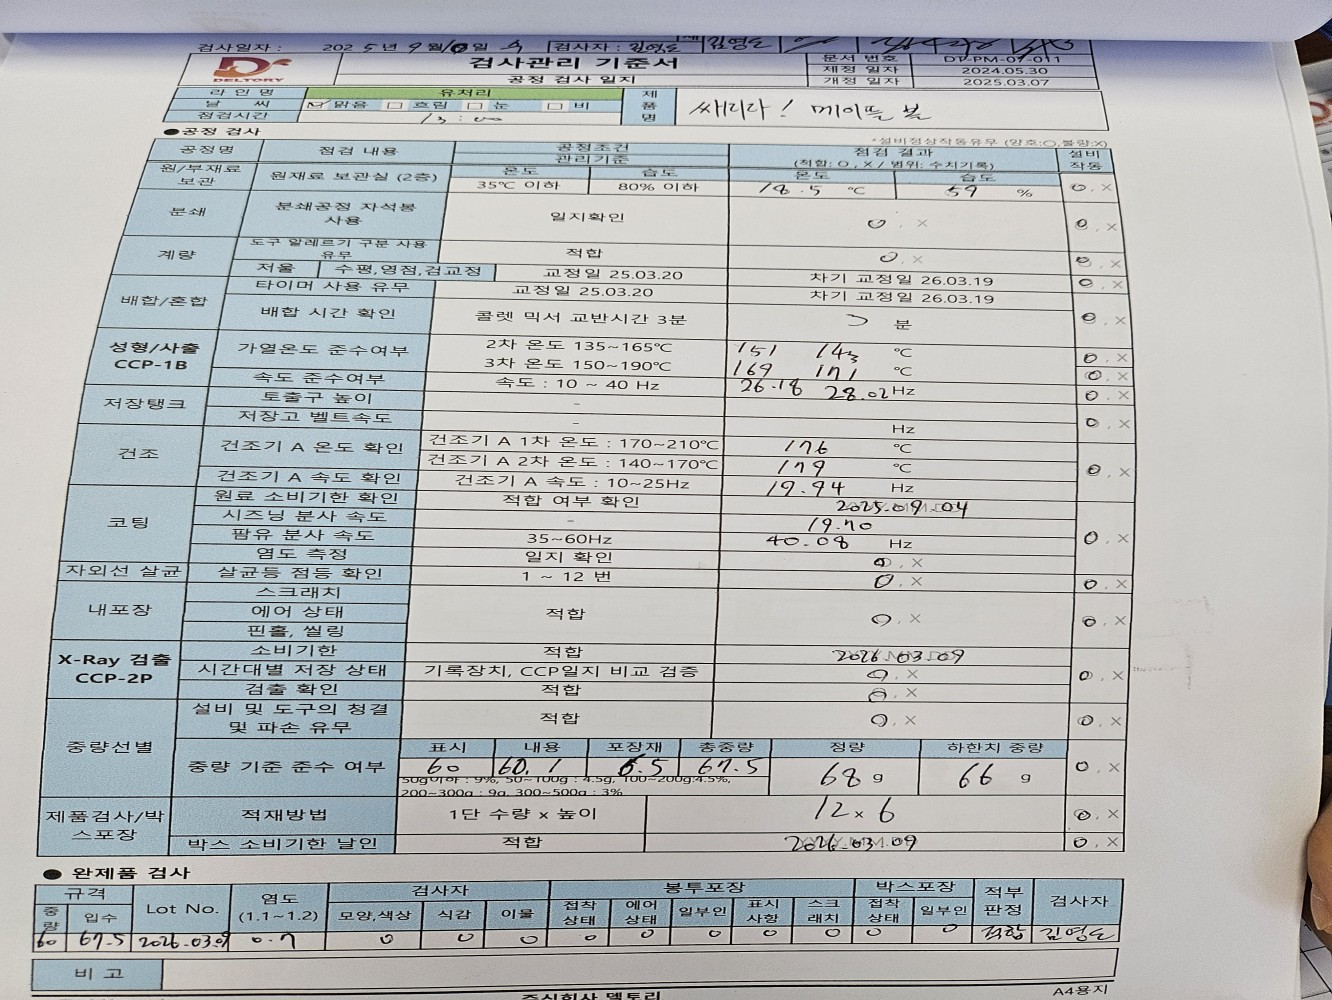 검사일자 : 2025년 9월 10일 검사자 : 김영도 김영도
검사관리 기준서
공정 검사 일지
문서 번호 DT-PM-07-011
제정 일자 2024.05.30
개정 일자 2025.03.07
DELTORY
라 인 명 유처리
날 씨 맑음 흐림 눈 비
점검시간 13:00
제품명 쌔리라! 메이플 볼
●공정 검사
*설비정상작동유무 (양호:O,불량:X)
공정명 점검 내용 공정조건 점검 결과 설비작동
관리기준 (적합: O , X / 범위: 수치기록)
온도 습도 온도 습도
원/부재료 보관 원재료 보관실 (2층) 35℃ 이하 80% 이하 18.5 ℃ 59 % O, X
분쇄 분쇄공정 자석봉 사용 일지확인 O, X O, X
계량 도구 알레르기 구분 사용 유무 적합 O, X O, X
저울 수평,영점,검교정 교정일 25.03.20 차기 교정일 26.03.19 O, X
배합/혼합 타이머 사용 유무 교정일 25.03.20 차기 교정일 26.03.19
배합 시간 확인 콜렛 믹서 교반시간 3분 3 분 O, X
성형/사출 CCP-1B 가열온도 준수여부 2차 온도 135~165℃ 151 143 ℃ O, X
3차 온도 150~190℃ 169 171 ℃ O, X
속도 준수여부 속도 : 10 ~ 40 Hz 26.18 28.02 Hz O, X
저장탱크 토출구 높이 -
저장고 벨트속도 - Hz O, X
건조 건조기 A 온도 확인 건조기 A 1차 온도 : 170~210℃ 176 ℃
건조기 A 2차 온도 : 140~170℃ 179 ℃ O, X
건조기 A 속도 확인 건조기 A 속도 : 10~25Hz 19.94 Hz
코팅 원료 소비기한 확인 적합 여부 확인 2025.09.04
시즈닝 분사 속도 - 19.70
팜유 분사 속도 35~60Hz 40.08 Hz O, X
염도 측정 일지 확인 O, X
자외선 살균 살균등 점등 확인 1 ~ 12 번 O, X O, X
내포장 스크래치
에어 상태 적합 O, X O, X
핀홀, 씰링
X-Ray 검출 CCP-2P 소비기한 적합 2026.03.09
시간대별 저장 상태 기록장치, CCP일지 비교 검증 O, X O, X
검출 확인 적합 O, X
중량선별 설비 및 도구의 청결 및 파손 유무 적합 O, X O, X
중량 기준 준수 여부 표시 내용 포장재 총중량 정량 하한치 중량
60 60.1 6.5 67.5 68 g 66 g O, X
50g이하 : 9%, 50~100g : 4.5g, 100~200g:4.5%,
200~300g : 9g, 300~500g : 3%
제품검사/박스포장 적재방법 1단 수량 x 높이 12 x 6 O, X
박스 소비기한 날인 적합 2026.03.09 O, X
● 완제품 검사
규격 Lot No. 염도 (1.1~1.2) 검사자 봉투포장 박스포장 적부판정 검사자
중량 입수 모양,색상 식감 이물 접착상태 에어상태 일부인 표시사항 스크래치 접착상태 일부인
60 67.5 2026.03.09 0.7 O O O O O O O O O O 적합 김영도
비 고
주식회사 델토리
A4용지